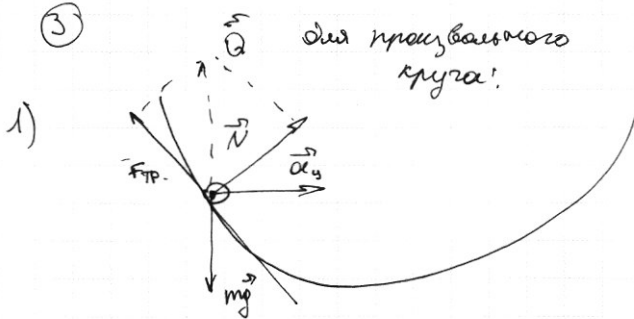 3
для произвольного
круга:
Q
1)
N
Fтр.
aц
mg